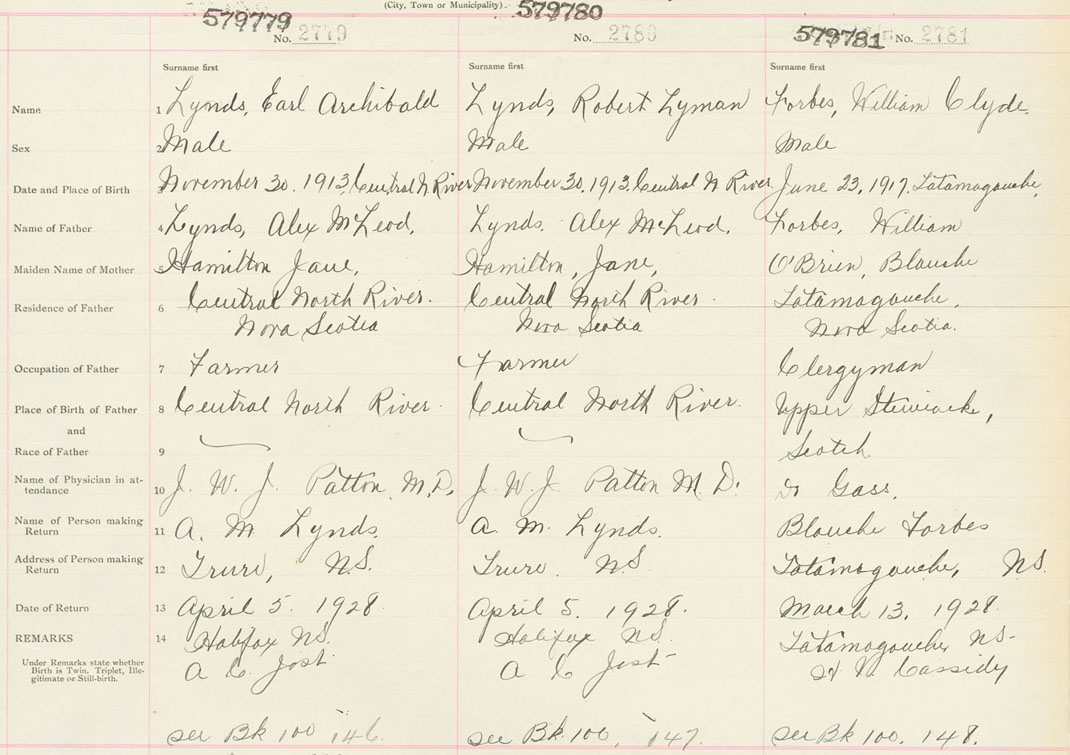 (City, Town or Municipality)
579779 No. 2779
579780 No. 2780
579781 No. 2781
Surname first Surname first Surname first
Name 1 Lynds, Earl Archibald Lynds, Robert Lyman Forbes, William Clyde.
Sex 2 Male Male Male
Date and Place of Birth 3 November 30. 1913, Central N River November 30, 1913, Central N River June 23, 1917, Tatamagouche,
Name of Father 4 Lynds, Alex McLeod, Lynds. Alex McLeod, Forbes, William
Maiden Name of Mother 5 Hamilton Jane, Hamilton, Jane, O'Brien, Blanche
Residence of Father 6 Central North River. Central North River. Tatamagouche,
Nova Scotia Nova Scotia Nova Scotia.
Occupation of Father 7 Farmer Farmer Clergyman
Place of Birth of Father 8 Central North River. Central North River. Upper Stewiacke,
and
Race of Father 9 Scotch
Name of Physician in at-
tendance 10 J. W. J. Patton, M.D. J. W. J. Patton M. D. Dr Gass.
Name of Person making
Return 11 A. M Lynds. A. M. Lynds. Blanche Forbes
Address of Person making
Return 12 Truro, N.S. Truro. N.S Tatamagouche, N.S.
Date of Return 13 April 5. 1928. April 5. 1928. March 13, 1928.
REMARKS 14 Halifax N.S. Halifax N.S. Tatamagouche N.S-
Under Remarks state whether
Birth is Twin, Triplet, Ille-
gitimate or Still-birth.
A C. Jost A C Jost Cassidy
see Bk 100 146. see Bk. 100, 147. see Bk 100, 148.